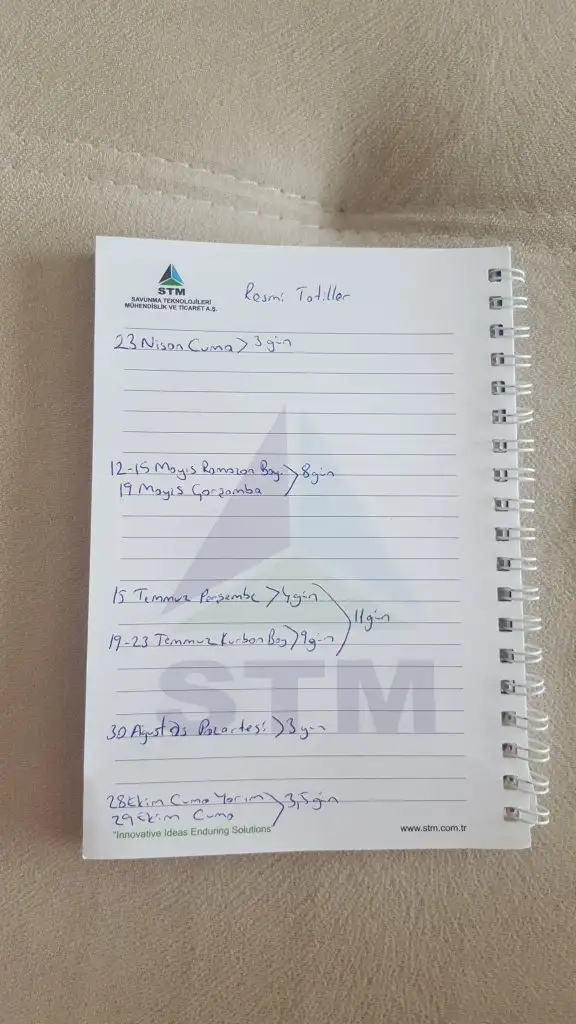 STM
SAVUNMA TEKNOLOJİLERİ
MÜHENDİSLİK VE TİCARET A.Ş.
Resmi Tatiller
23 Nisan Cuma > 3 gün
12-15 Mayıs Ramazan Bay. > 8 gün
19 Mayıs Çarşamba
15 Temmuz Perşembe > 4 gün
11 gün
19-23 Temmuz Kurban Bay > 9 gün
STM
30 Ağustos Pazartesi > 3 gün
28 Ekim Cuma Yarım > 3,5 gün
29 Ekim Cuma
"Innovative Ideas Enduring Solutions"
www.stm.com.tr